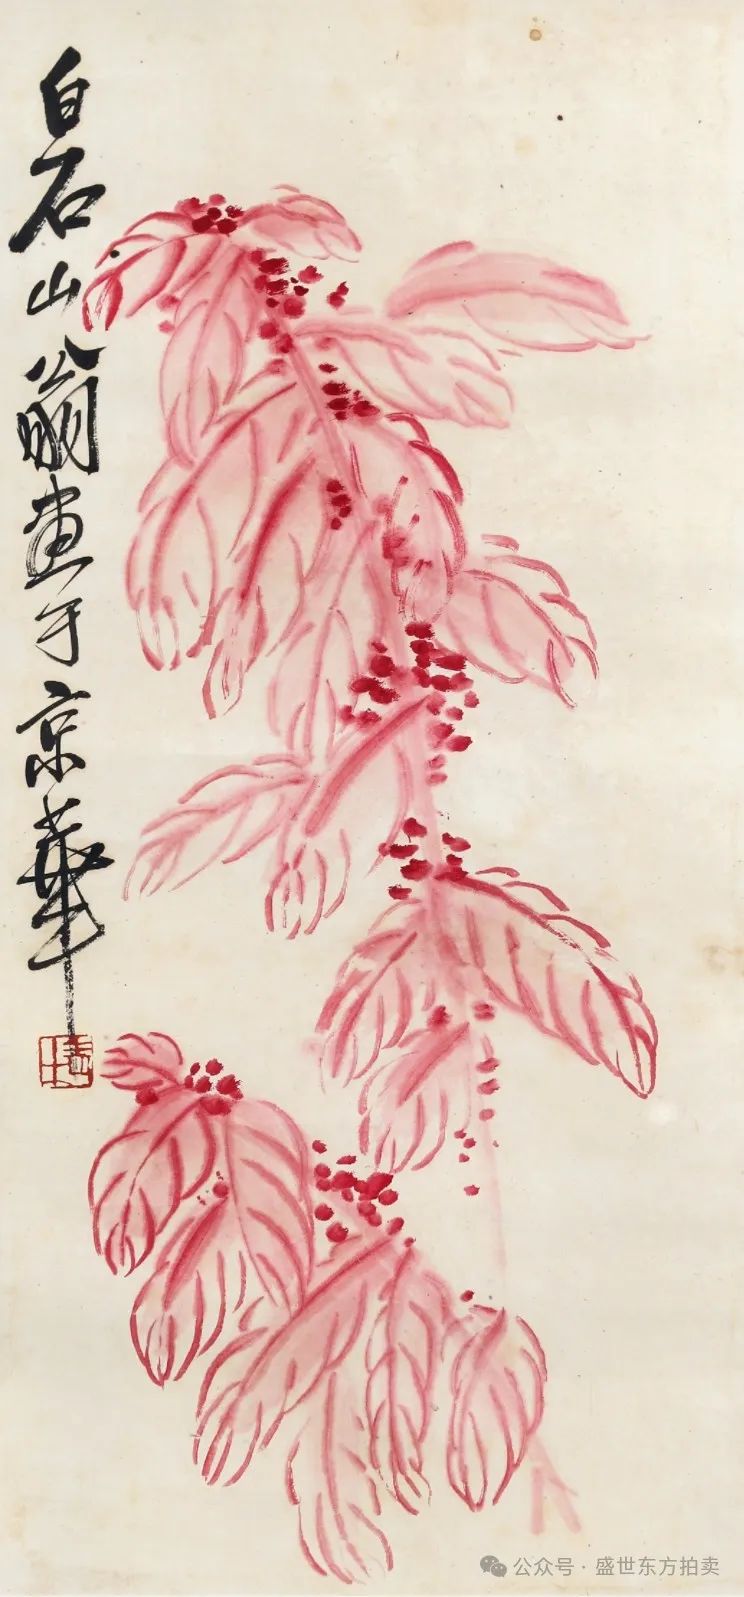 白石山翁画于京華
公众号·盛世东方拍卖